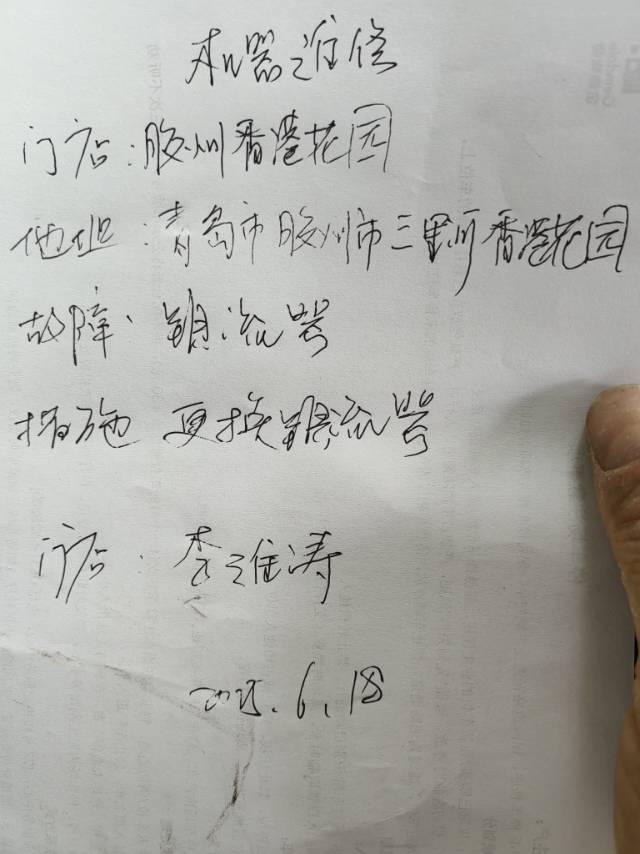 机器维修
门店:胶州香港花园
地址:青岛市胶州市三里河香港花园
故障:镇流器
措施 更换镇流器
门店:李维涛
2025.6.18